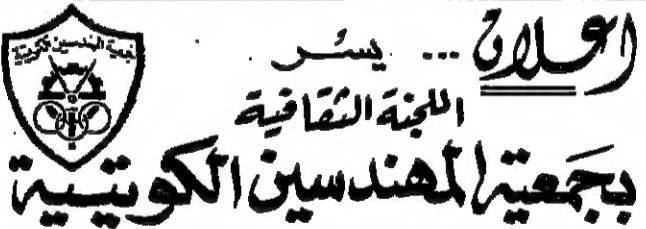 اعلان ... يسر
اللجنة الثقافية
بجمعية المهندسين الكويتية
جمعية المهندسين الكويتية